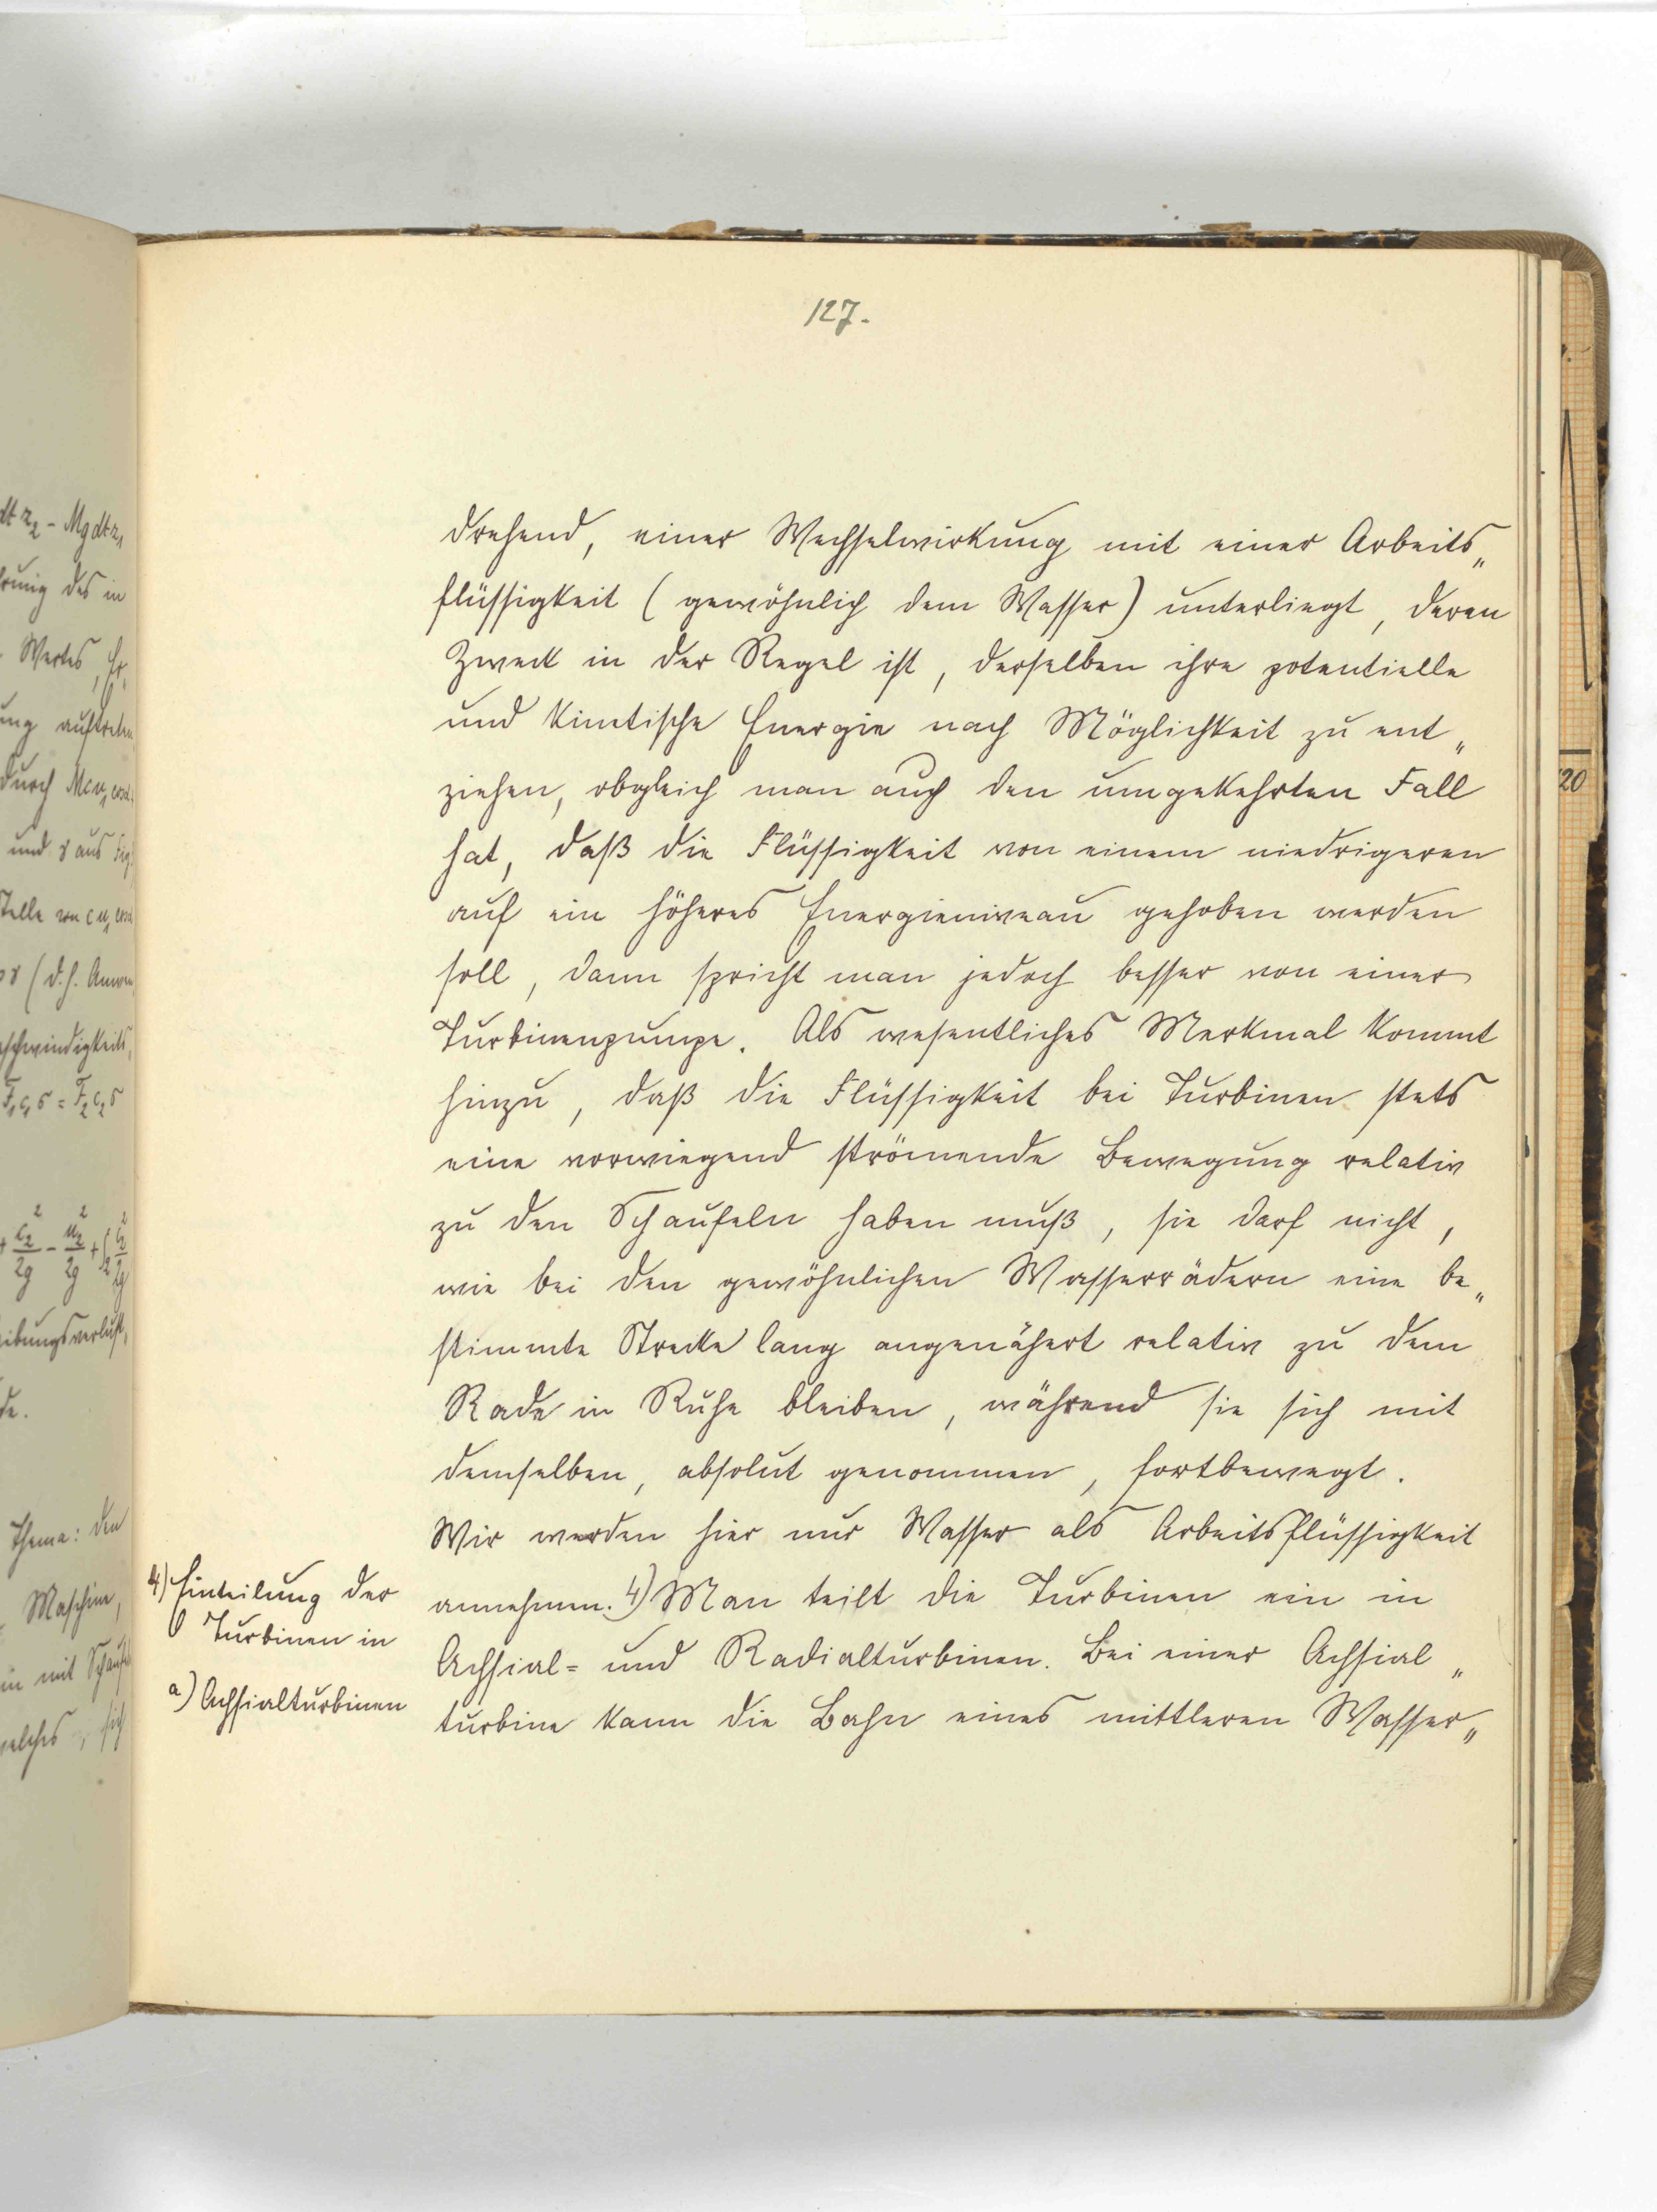 127.
drehend, einer Wechselwirkung mit einer Arbeits„
flüssigkeit (gewöhnlich dem Wasser) unterliegt, deren
Zweck in der Regel ist, derselben ihre potentielle
und kinetische Energie nach Möglichkeit zu ent„
ziehen, obgleich man auch den umgekehrten Fall
hat, daß die Flüssigkeit von einem niedrigeren
auf ein höheres Energieniveau gehoben werden
soll, dann spricht man jedoch besser von einer
Turbinenpumpe. Als wesentliches Merkmal kommt
hinzu, daß die Flüssigkeit bei Turbinen stets
eine vorwiegend strömende Bewegung relativ
zu den Schaufeln haben muß, sie darf nicht,
wie bei den gewöhnlichen Wasserrädern eine be„
stimmte Strecke lang angenähert relativ zu dem
Rade in Ruhe bleiben, während sie sich mit
demselben, absolut genommen, fortbewegt.
Wir werden hier nur Wasser als Arbeitsflüssigkeit
annehmen. 4) Man teilt die Turbinen ein in
Achsial= und Radialturbinen. Bei einer Achsial„
turbine kann die Bahn eines mittleren Wasser„
4) Einteilung der
Turbinen in
a) Achsialturbinen
dt z2 - Mg dt z1
des in
Wertes, Er„
auftreten
durch
und γ aus Fig.
(d.h.
F1 c1 σ = F2 c2 σ
Thema: den
Maschine,
mit
sich
20